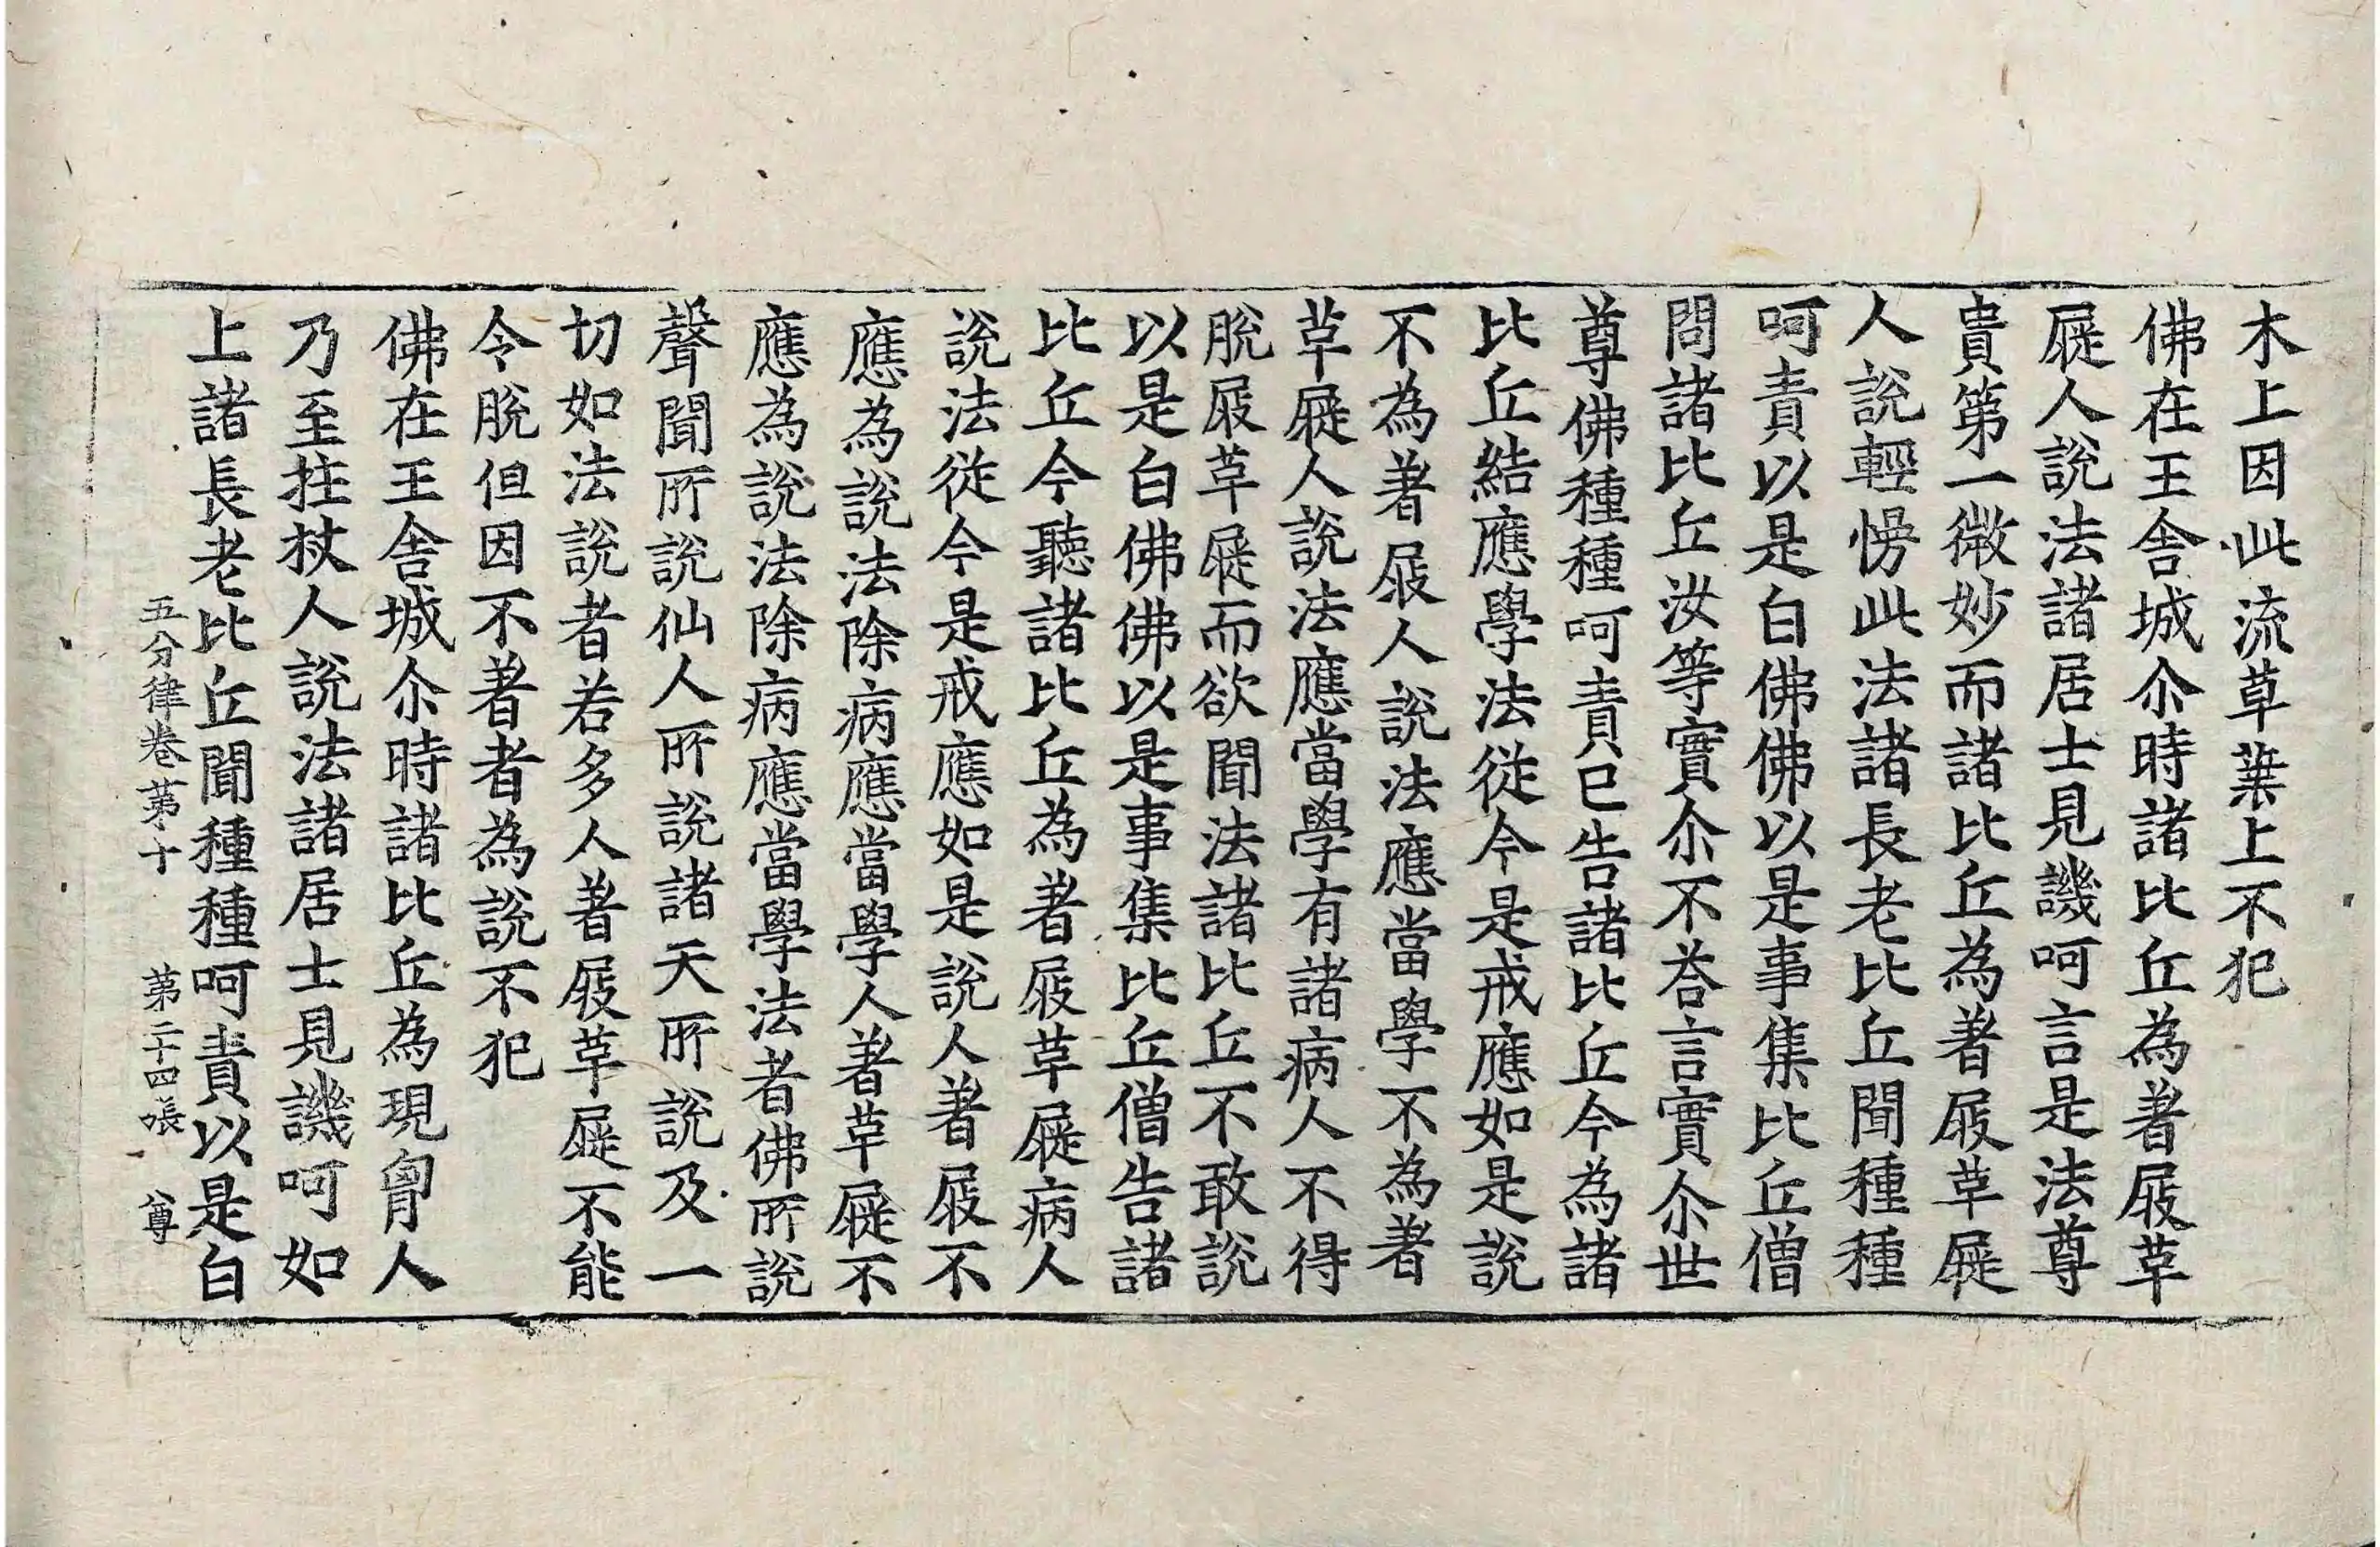 木上因此流草葉上不犯
佛在王舍城尒時諸比丘為著屐草
屣人說法諸居士見譏呵言是法尊
貴第一微妙而諸比丘為著屐草屣
人說輕慢此法諸長老比丘聞種種
呵責以是白佛佛以是事集比丘僧
問諸比丘汝等實尒不荅言實尒世
尊佛種種呵責已告諸比丘今為諸
比丘結應學法從今是戒應如是說
不為著屐人說法應當學不為著
草屣人說法應當學有諸病人不得
脫屐草屣而欲聞法諸比丘不敢說
以是白佛佛以是事集比丘僧告諸
比丘今聽諸比丘為著屐草屣病人
說法從今是戒應如是說人著屐不
應為說法除病應當學人著草屣不
應為說法除病應當學法者佛所說
聲聞所說仙人所說諸天所說及一
切如法說者若多人著屐草屣不能
令脫但因不著者為說不犯
佛在王舍城尒時諸比丘為現胷人
乃至拄杖人說法諸居士見譏呵如
上諸長老比丘聞種種呵責以是白
五分律卷第十 第二十四張 尊